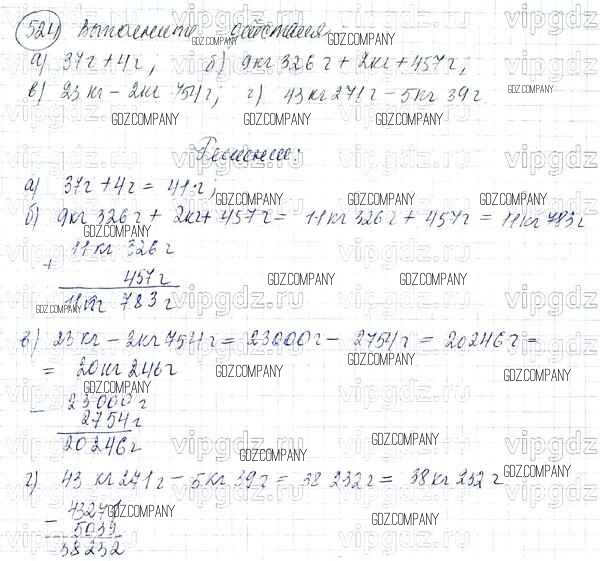 524) Выполните действия
а) 37г + 4г; б) 9кг 326г + 2кг + 457г;
в) 23 кг - 2кг 754г; г) 43 кг 271г - 5 кг 39 г
Решение:
а) 37г + 4г = 41г;
б) 9кг 326г + 2кг + 457г = 11кг 326г + 457г = 11кг 783г
11 кг 326 г
+
457 г
11 кг 783 г
в) 23 кг - 2кг 754г = 23000г - 2754г = 20246г =
= 20кг 246г
- 23000г
2754г
20246г
г) 43 кг 271г - 5кг 39г = 38 232г = 38 кг 232 г
- 43271
5039
38232
GDZ.COMPANY
vipgdz.ru